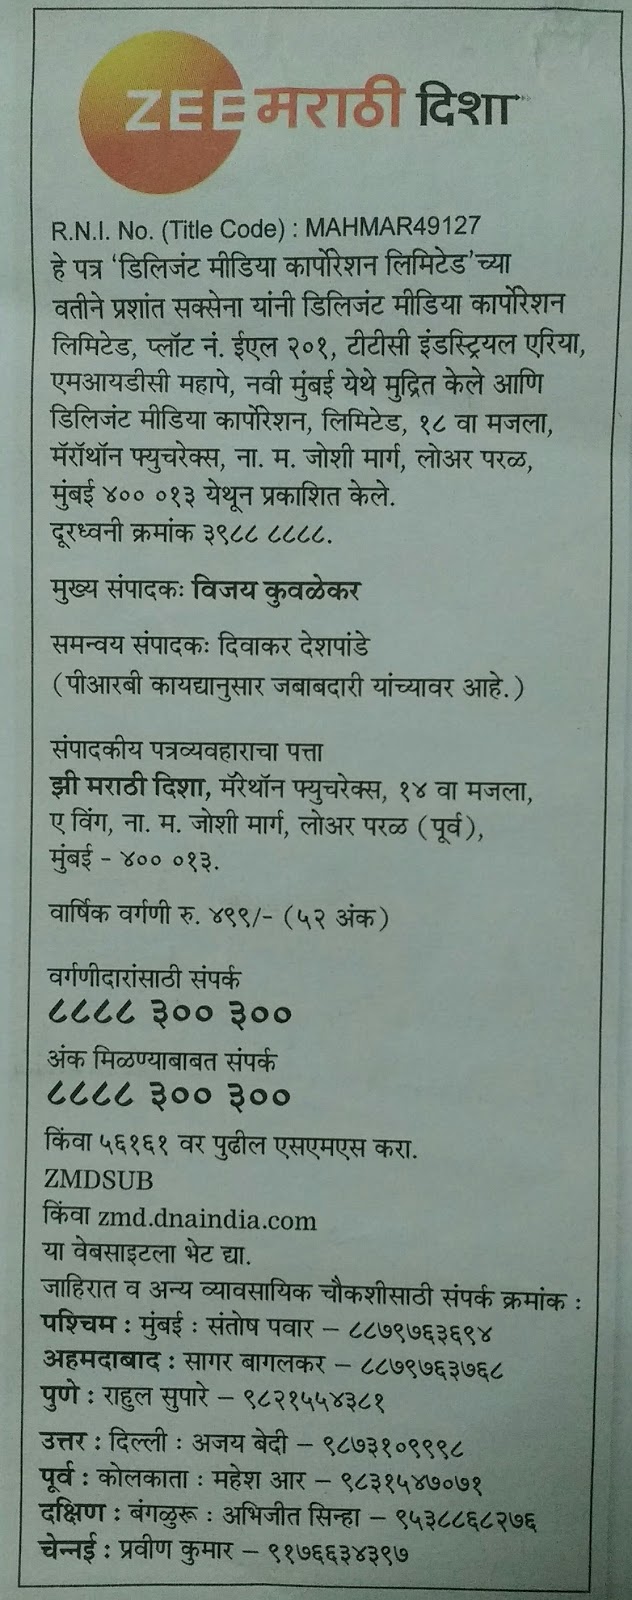 ZEE मराठी दिशा
R.N.I. No. (Title Code) : MAHMAR49127
हे पत्र ‘डिलिजंट मीडिया कार्पोरेशन लिमिटेड’च्या
वतीने प्रशांत सक्सेना यांनी डिलिजंट मीडिया कार्पोरेशन
लिमिटेड, प्लॉट नं. ईएल २०१, टीटीसी इंडस्ट्रियल एरिया,
एमआयडीसी महापे, नवी मुंबई येथे मुद्रित केले आणि
डिलिजंट मीडिया कार्पोरेशन, लिमिटेड, १८ वा मजला,
मॅरॉथॉन फ्युचरेक्स, ना. म. जोशी मार्ग, लोअर परळ,
मुंबई ४०० ०१३ येथून प्रकाशित केले.
दूरध्वनी क्रमांक ३९८८ ८८८८.
मुख्य संपादकः विजय कुवळेकर
समन्वय संपादकः दिवाकर देशपांडे
(पीआरबी कायद्यानुसार जबाबदारी यांच्यावर आहे.)
संपादकीय पत्रव्यवहाराचा पत्ता
झी मराठी दिशा, मॅरेथॉन फ्युचरेक्स, १४ वा मजला,
ए विंग, ना. म. जोशी मार्ग, लोअर परळ (पूर्व),
मुंबई - ४०० ०१३.
वार्षिक वर्गणी रु. ४९९/- (५२ अंक)
वर्गणीदारांसाठी संपर्क
८८८८ ३०० ३००
अंक मिळण्याबाबत संपर्क
८८८८ ३०० ३००
किंवा ५६१६१ वर पुढील एसएमएस करा.
ZMDSUB
किंवा zmd.dnaindia.com
या वेबसाइटला भेट द्या.
जाहिरात व अन्य व्यावसायिक चौकशीसाठी संपर्क क्रमांक :
पश्चिम : मुंबई : संतोष पवार – ८८७९७६३६९४
अहमदाबाद : सागर बागलकर – ८८७९७६३७६८
पुणे : राहुल सुपारे – ९८२१५५४३८१
उत्तर : दिल्ली : अजय बेदी – ९८७३१०९९९८
पूर्व : कोलकाता : महेश आर – ९८३१५४७०७१
दक्षिण : बंगळुरू : अभिजीत सिन्हा – ९५३८८६८२७६
चेन्नई : प्रवीण कुमार – ९१७६६३४३९७